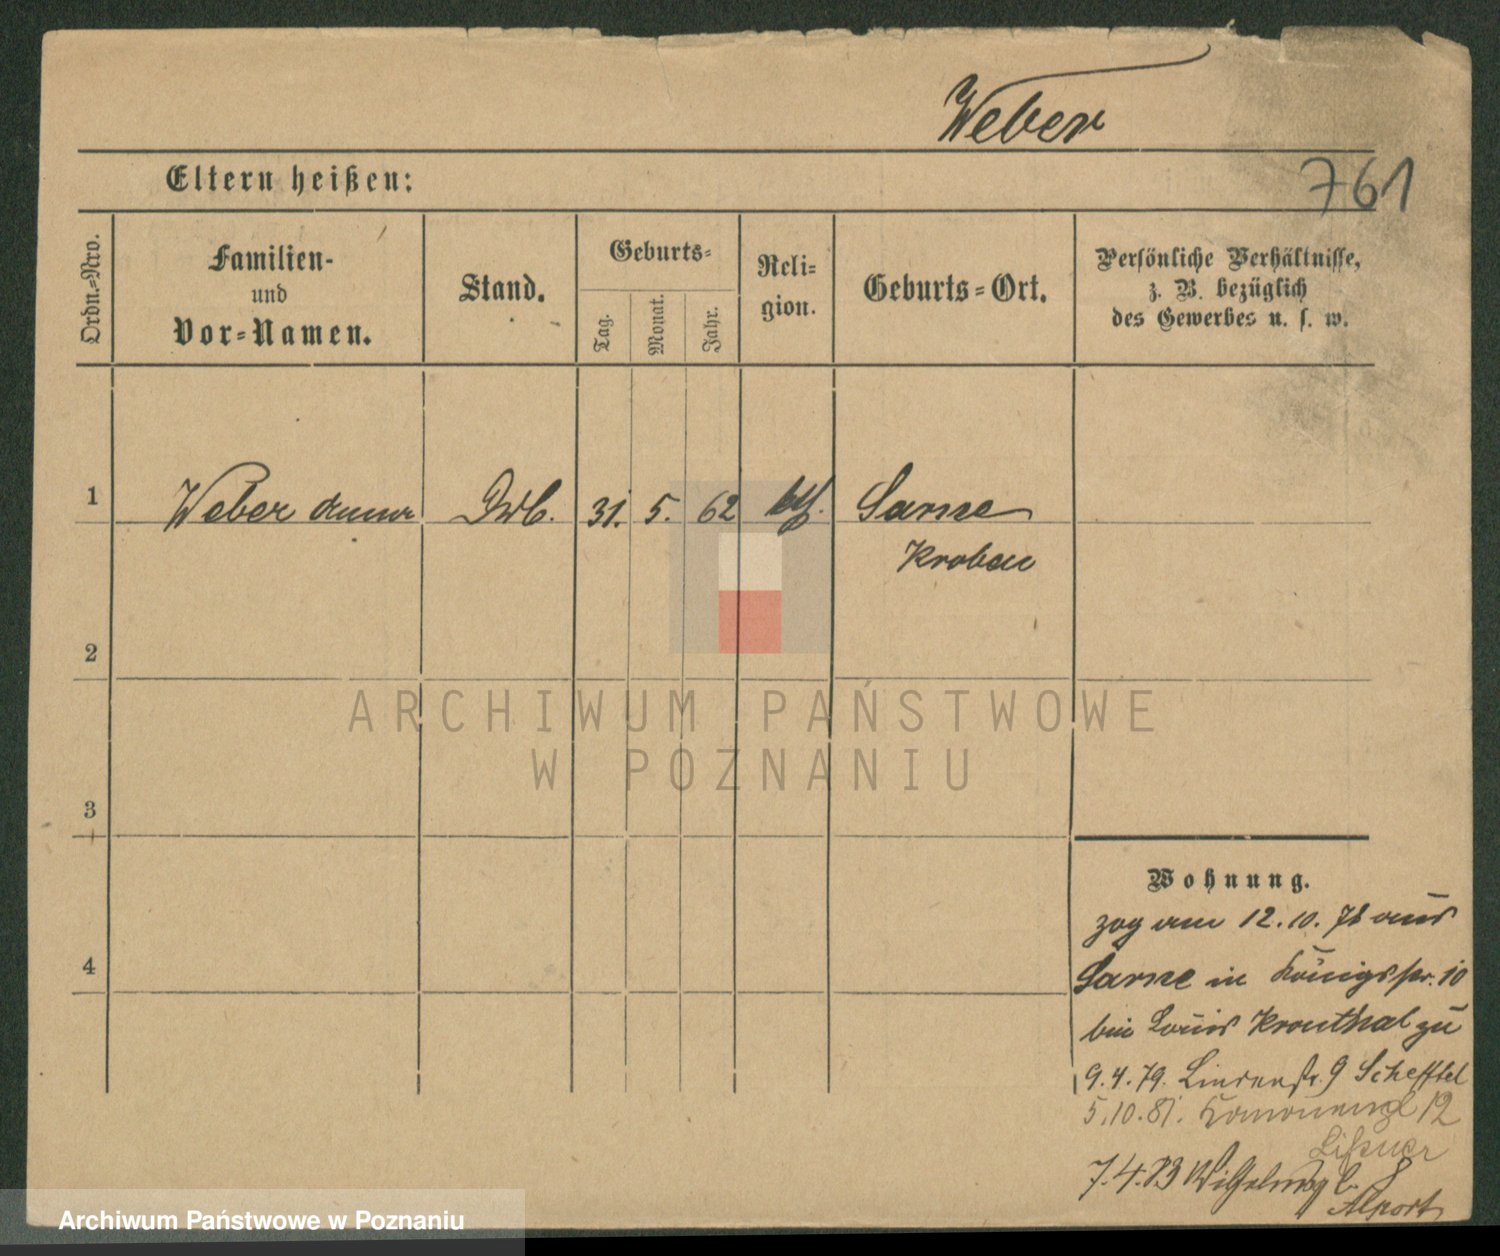 Weber
761
Eltern heißen:
Ordn.-Nro.
Familien-
und
Vor-Namen.
Stand.
Geburts-
Tag.
Monat.
Jahr.
Reli-
gion.
Geburts-Ort.
Persönliche Verhältnisse,
z. B. bezüglich
des Gewerbes u. s. w.
1 Weber Anna 31. 5. 62 Sarne
Kroben
2
ARCHIWUM PAŃSTWOWE
W POZNANIU
3
4
Wohnung.
zog am 12.10.78 aus
Sarne in Königsstr. 10
bei Louis Kronthal zu
9.4.79. Lindenstr. 9 Schefftel
5.10.81. 12
Lißner
7.4.83 Wilhelmspl. 8
Alport
Archiwum Państwowe w Poznaniu